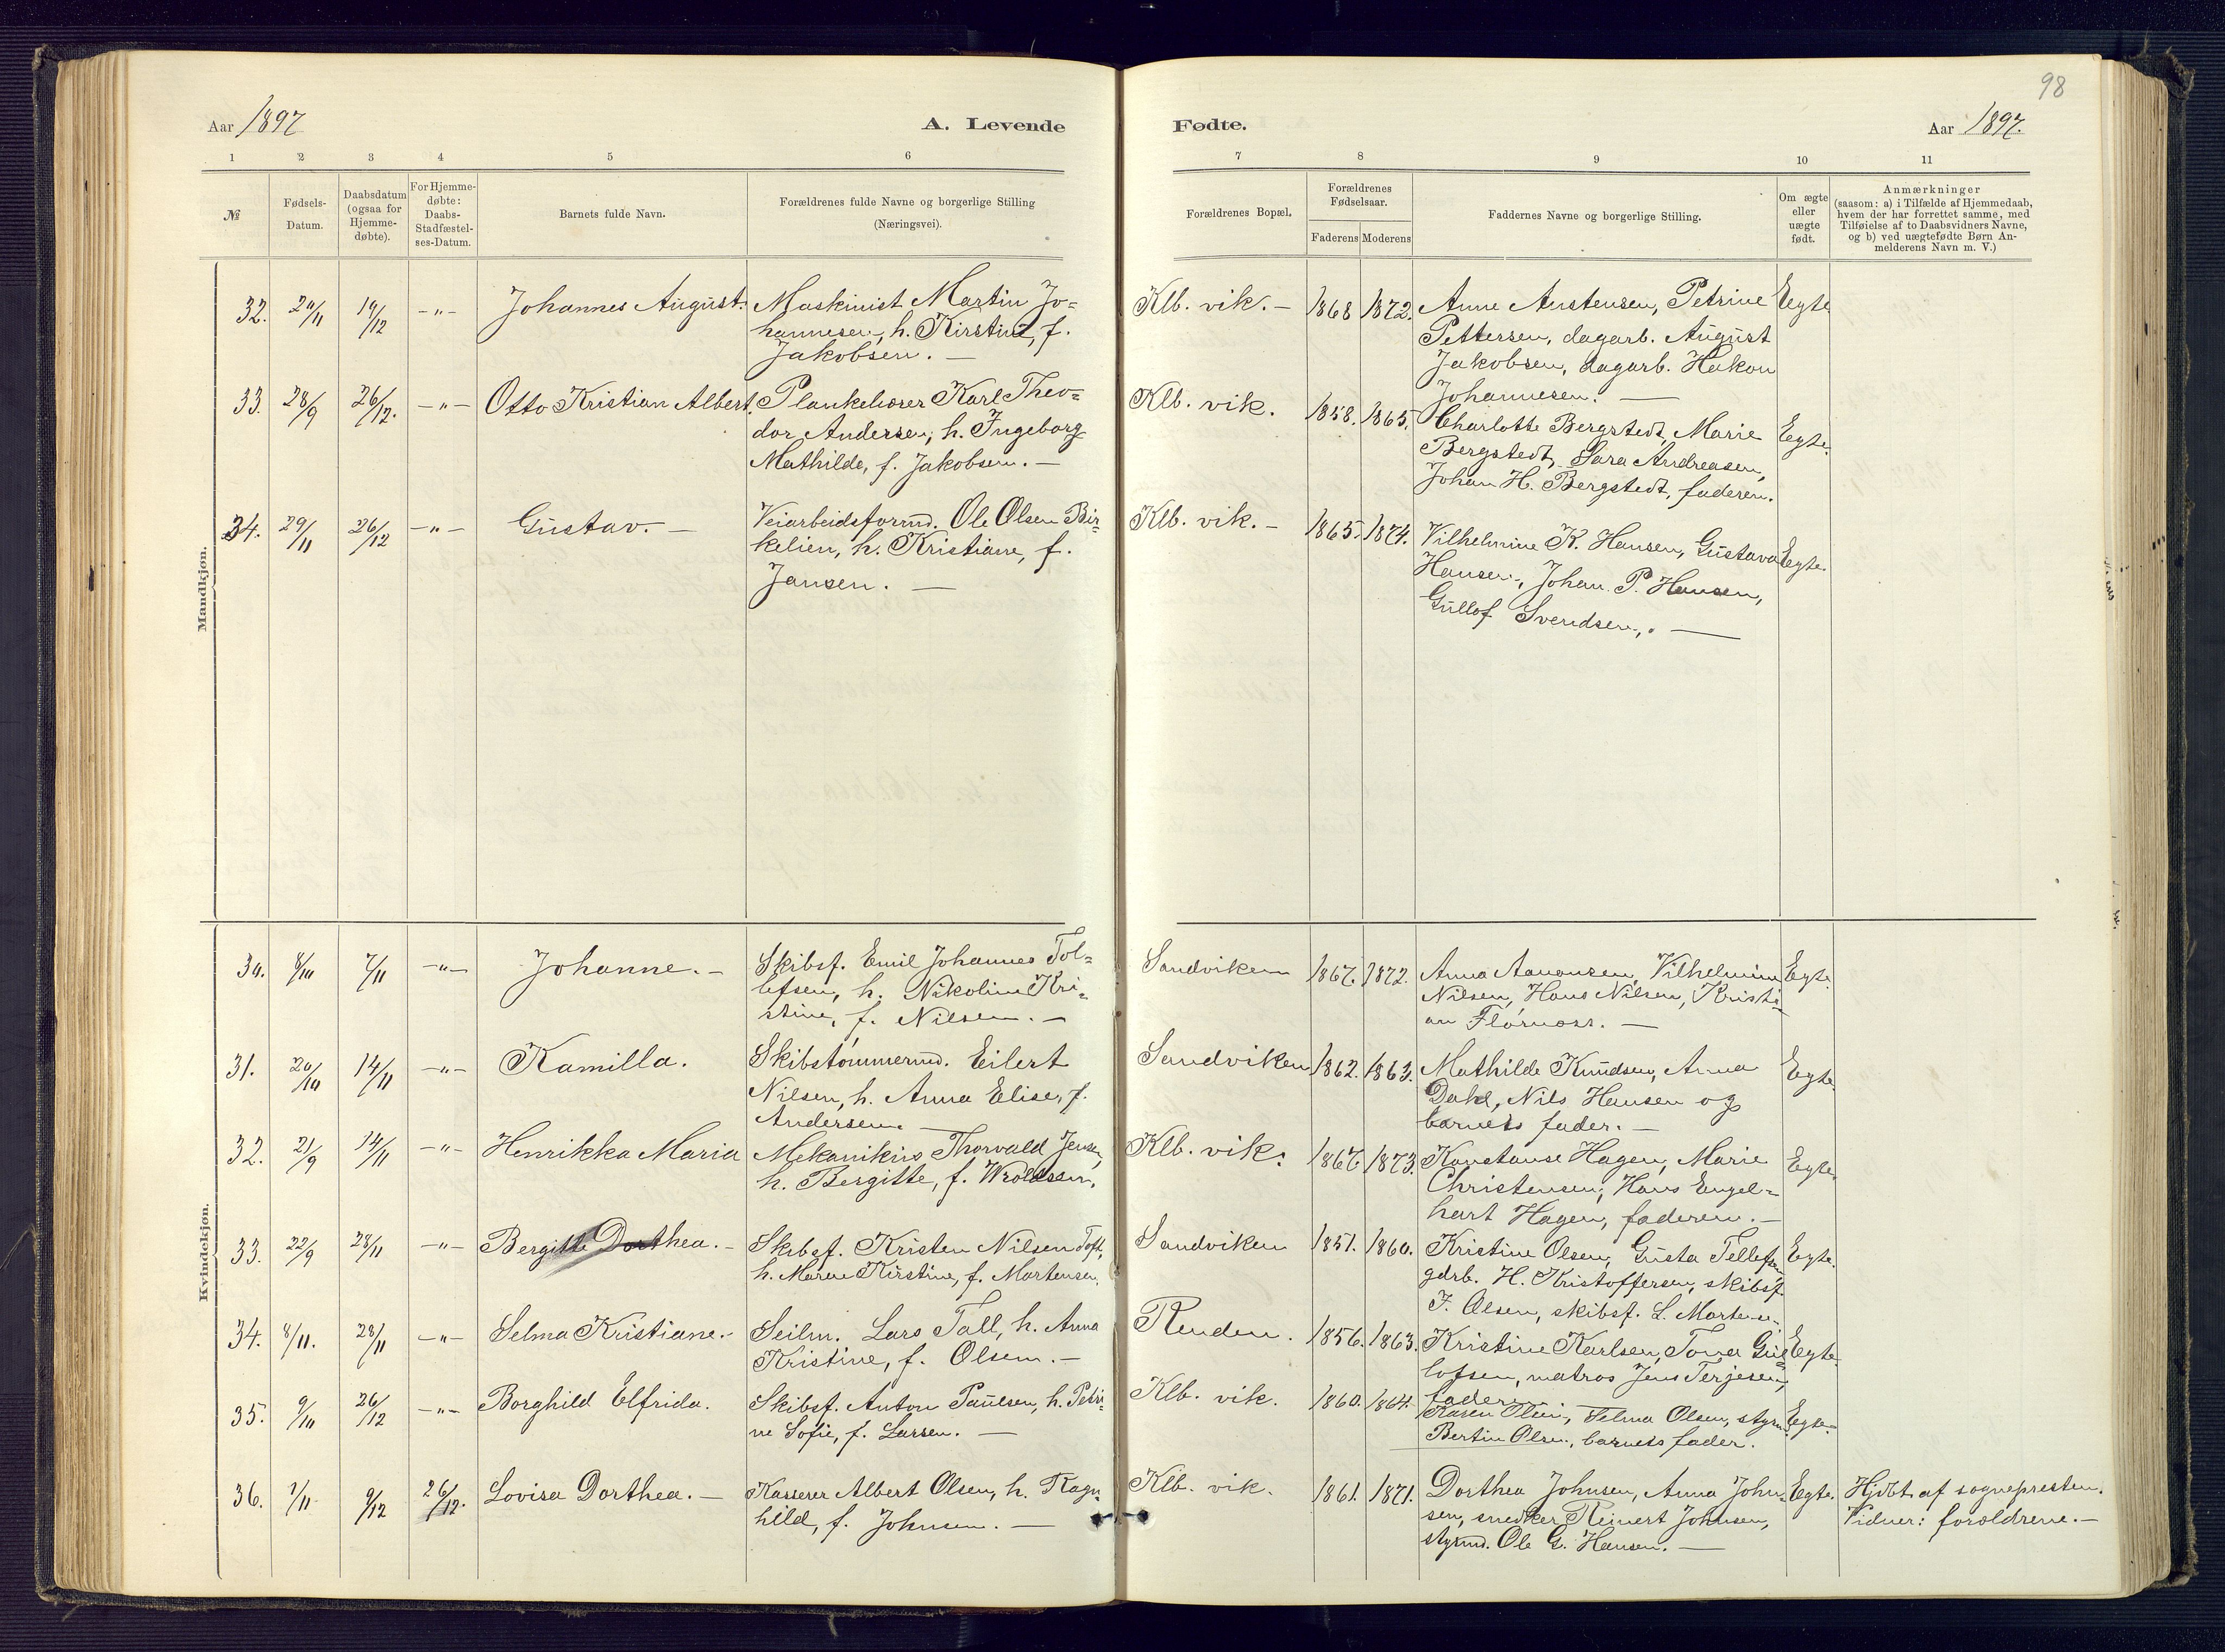 98
Aar 1897
A. Levende
Fødte.
Aar 1897.
1 2 3 4 5 6 7 8 9 10 11
№
Fødsels-
Datum.
Daabsdatum
(ogsaa for
Hjemme-
døbte).
For Hjemme-
døbte:
Daabs-
Stadfæstel-
ses-Datum.
Barnets fulde Navn.
Forældrenes fulde Navne og borgerlige Stilling
(Næringsvei).
Forældrenes Bopæl.
Forældrenes
Fødselsaar.
Faderens Moderens
Faddernes Navne og borgerlige Stilling.
Om ægte
eller
uægte
født.
Anmærkninger
(saasom: a) i Tilfælde af Hjemmedaab,
hvem der har forrettet samme, med
Tilføielse af to Daabsvidners Navne,
og b) ved uægtefødte Børn An-
melderens Navn m. V.)
Mandkjøn.
32. 20/11 19/12 -"- Johannes August. Maskinist Martin Jo=
hannesen, h. Kirstine, f.
Jakobsen. —
Klb. vik. - 1868 1872. Anne Austensen, Petrine Egte
Pettersen, dagarb. August
Jakobsen, dagarb. Hakon
Johannesen. —
33. 28/9 26/12. -"- Otto Kristian Albert. Plankebærer Karl Theo=
dor Andersen, h. Ingeborg
Mathilde, f. Jakobsen. —
Klb. vik. 1858. 1865. Charlotte Bergstedt, Marie Egte.
Bergstedt, Sara Andreasen,
Johan H. Bergstedt, faderen.
34. 29/11 26/12 -"- Gustav. - Veiarbeidsformd. Ole Olsen Bir=
kelien, h. Kristiane, f.
Jansen. —
Klb. vik. - 1865. 1874. Vilhelmine K. Hansen, Gustava Egte.
Hansen, Johan P. Hansen,
Gullof Svendsen,. —
Kvindekjøn.
30. 8/10 7/11 -"- Johanne. - Skibsf. Emil Johannes Tol=
lefsen, h. Nikoline Kri=
stine, f. Nilsen. —
Sandviken 1867. 1872. Anna Aanonsen, Vilhelmine Egte.
Nilsen, Hans Nilsen, Kristi=
an Flørnæss. —
31. 20/10 14/11 -"- Kamilla. Skibstømmermd. Eilert
Nilsen, h. Anna Elise, f.
Andersen. —
Sandviken 1862. 1863. Mathilde Knudsen, Anna Egte.
Dahl, Nils Hansen og
barnets fader. —
32. 21/9 14/11 -"- Henrikka Maria Mekanikus Thorvald Jensen,
h. Bergitte, f. Wroldsen.
Klb. vik. 1867. 1873. Konstanse Hagen, Marie Egte.
Christensen, Hans Engel=
hart Hagen, faderen. —
33. 22/9 28/11 -"- Bergitte Dorthea. - Skibsf. Kristen Nilsen Toft,
h. Maren Kirstine, f. Mortensen.
Sandviken 1851. 1860. Kristine Olsen, Gusta Tellefsen Egte.
gdrb. H. Kristoffersen, skibsf.
J. Olsen, skibsf. L. Mortensen.
34. 8/11. 28/11 -"- Selma Kristiane. - Seilm. Lars Tall, h. Anna
Kristine, f. Olsen. —
Renden. 1856. 1863. Kristine Karlsen, Tona Gul= Egte.
lofsen, matros Jens Terjesen,
fader.
35. 9/10 26/12 -"- Borghild Elfrida. Skibsf. Anton Paulsen, h. Petri=
ne Sofie, f. Larsen. —
Klb. vik. 1860. 1864. Karen Olsen, Selma Olsen, styrmd. Egte.
Bertin Olsen, barnets fader.
36. 1/11 9/12 26/12. Lovisa Dorthea. - Kasserer Albert Olsen, h. Ragn=
hild, f. Johnsen. —
Klb. vik. 1861. 1871. Dorthea Johnsen, Anna John= Egte. Hjdbt. af sognepresten.
sen, snedker Reinert Johnsen, Vidner: forældrene. —
styrmd. Ole G. Hansen. —